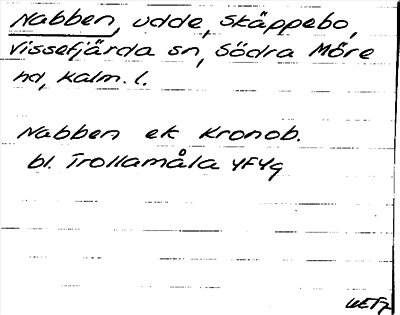 Nabben, udde, Skäppebo,
Vissefjärda sn, Södra Möre
hd, Kalm. l.
Nabben ek Kronob.
bl. Trollamåla 4F4g